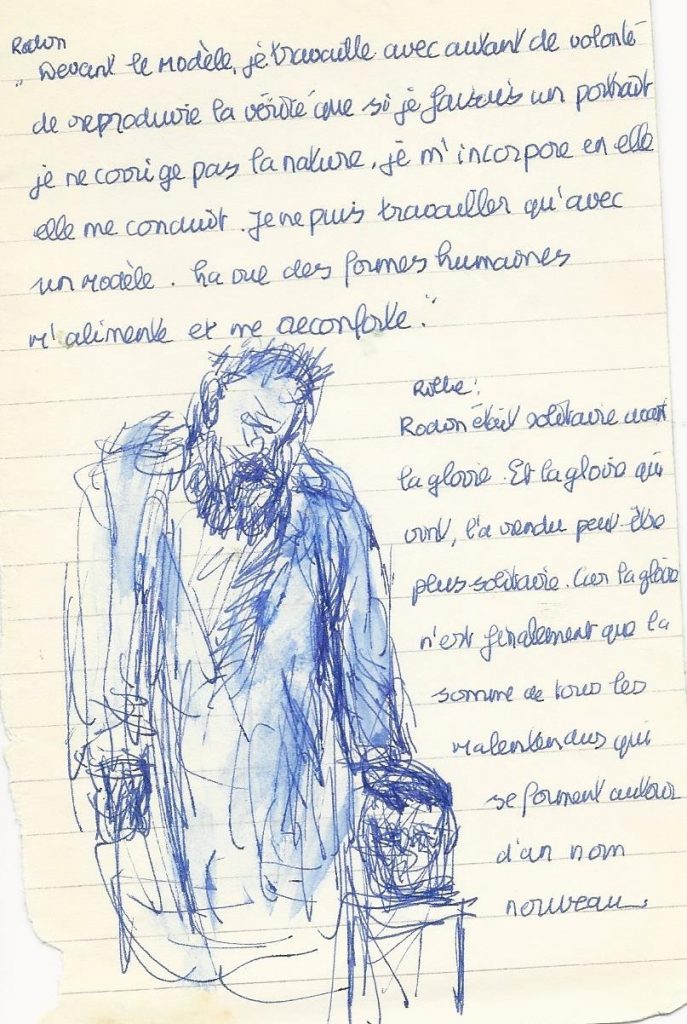 Rodin
"Devant le modèle, je travaille avec autant de volonté
de reproduire la vérité que si je faisais un portrait
je ne corrige pas la nature, je m'incorpore en elle
elle me conduit. Je ne puis travailler qu'avec
un modèle. La vue des formes humaines
m'alimente et me reconforte."
Rilke :
Rodin était solitaire avant
la gloire. Et la gloire qui
vint, l'a rendu peut être
plus solitaire. Car la gloire
n'est finalement que la
somme de tous les
malentendus qui
se forment autour
d'un nom
nouveau.